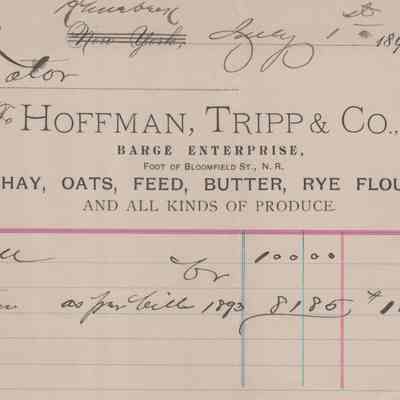 Rhinebeck
New York, July 1st 189
Estor
To HOFFMAN, TRIPP & Co.,
BARGE ENTERPRISE,
FOOT OF BLOOMFIELD ST., N. R.
HAY, OATS, FEED, BUTTER, RYE FLOU
AND ALL KINDS OF PRODUCE.
100 00
Cr
as per bill 1893 81 85 $1